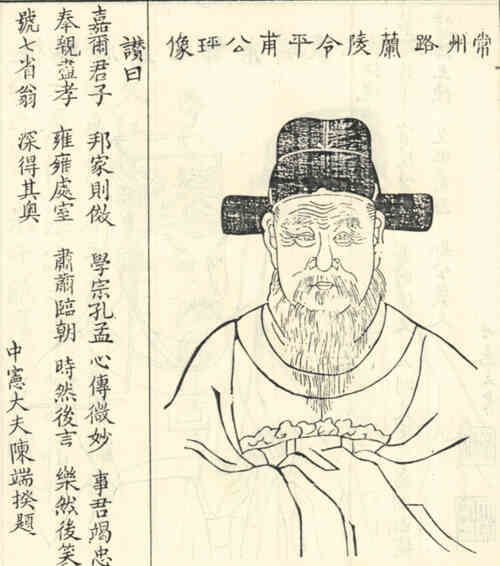 常州路蘭陵令平甫公玶像
讃曰
嘉爾君子 邦家則傚 學宗孔孟 心傳微妙 事君竭忠
奉親盡孝 雍雍處室 肅肅臨朝 時然後言 樂然後笑
號七省翁 深得其奧
中憲大夫陳端揆題